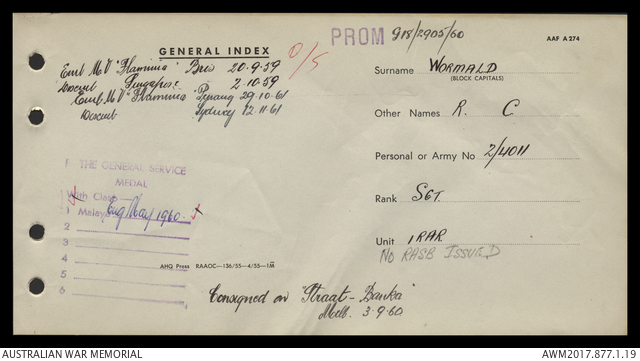 PROM G18/2905/60
AAF A 274
GENERAL INDEX
O/S
Emb M V "Flaminia" Bris 20.9.59
Disemb Singapore 2.10.59
Emb M V "Flaminia" Penang 29.10.61
Disemb Sydney 12.11.61
Surname WORMALD
(BLOCK CAPITALS)
Other Names R. C
Personal or Army No 2/4011
Rank SGT.
Unit 1RAR
NO RASB ISSUED
1 THE GENERAL SERVICE
MEDAL
With Clasp
1 Malaya May 1960
2
3
4
5
6
AHG Press RAAOC—136/55—4/55—1M
Consigned on "Straat-Banka"
Melb. 3-9-60
AUSTRALIAN WAR MEMORIAL
AWM2017.877.1.19